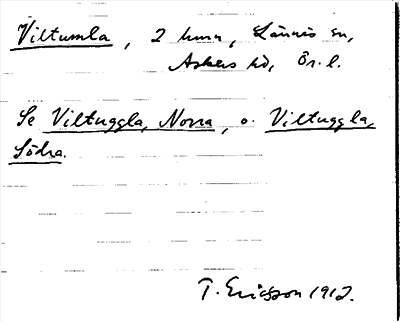 Viltumla, 2 hmn, Lännäs sn,
Askers hd, Ör. l.
Se Viltuggla, Norra, o. Viltuggla,
Södra.
T. Ericsson 1912.